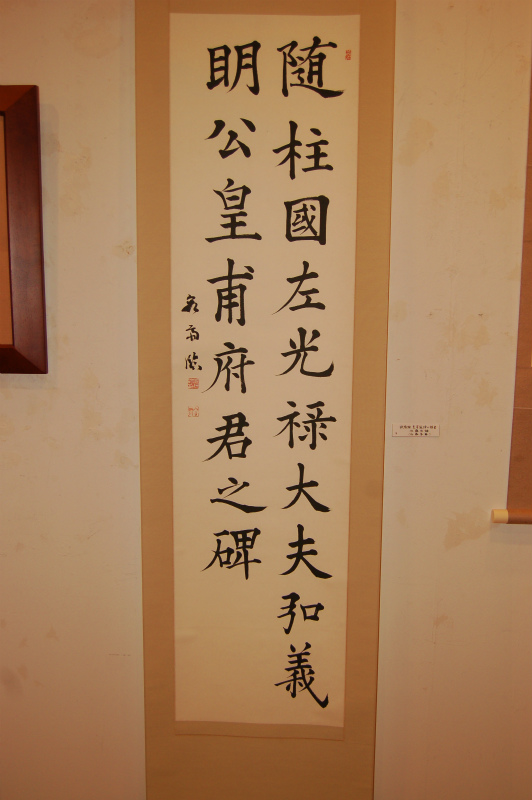 随柱國左光禄大夫弘義
明公皇甫府君之碑